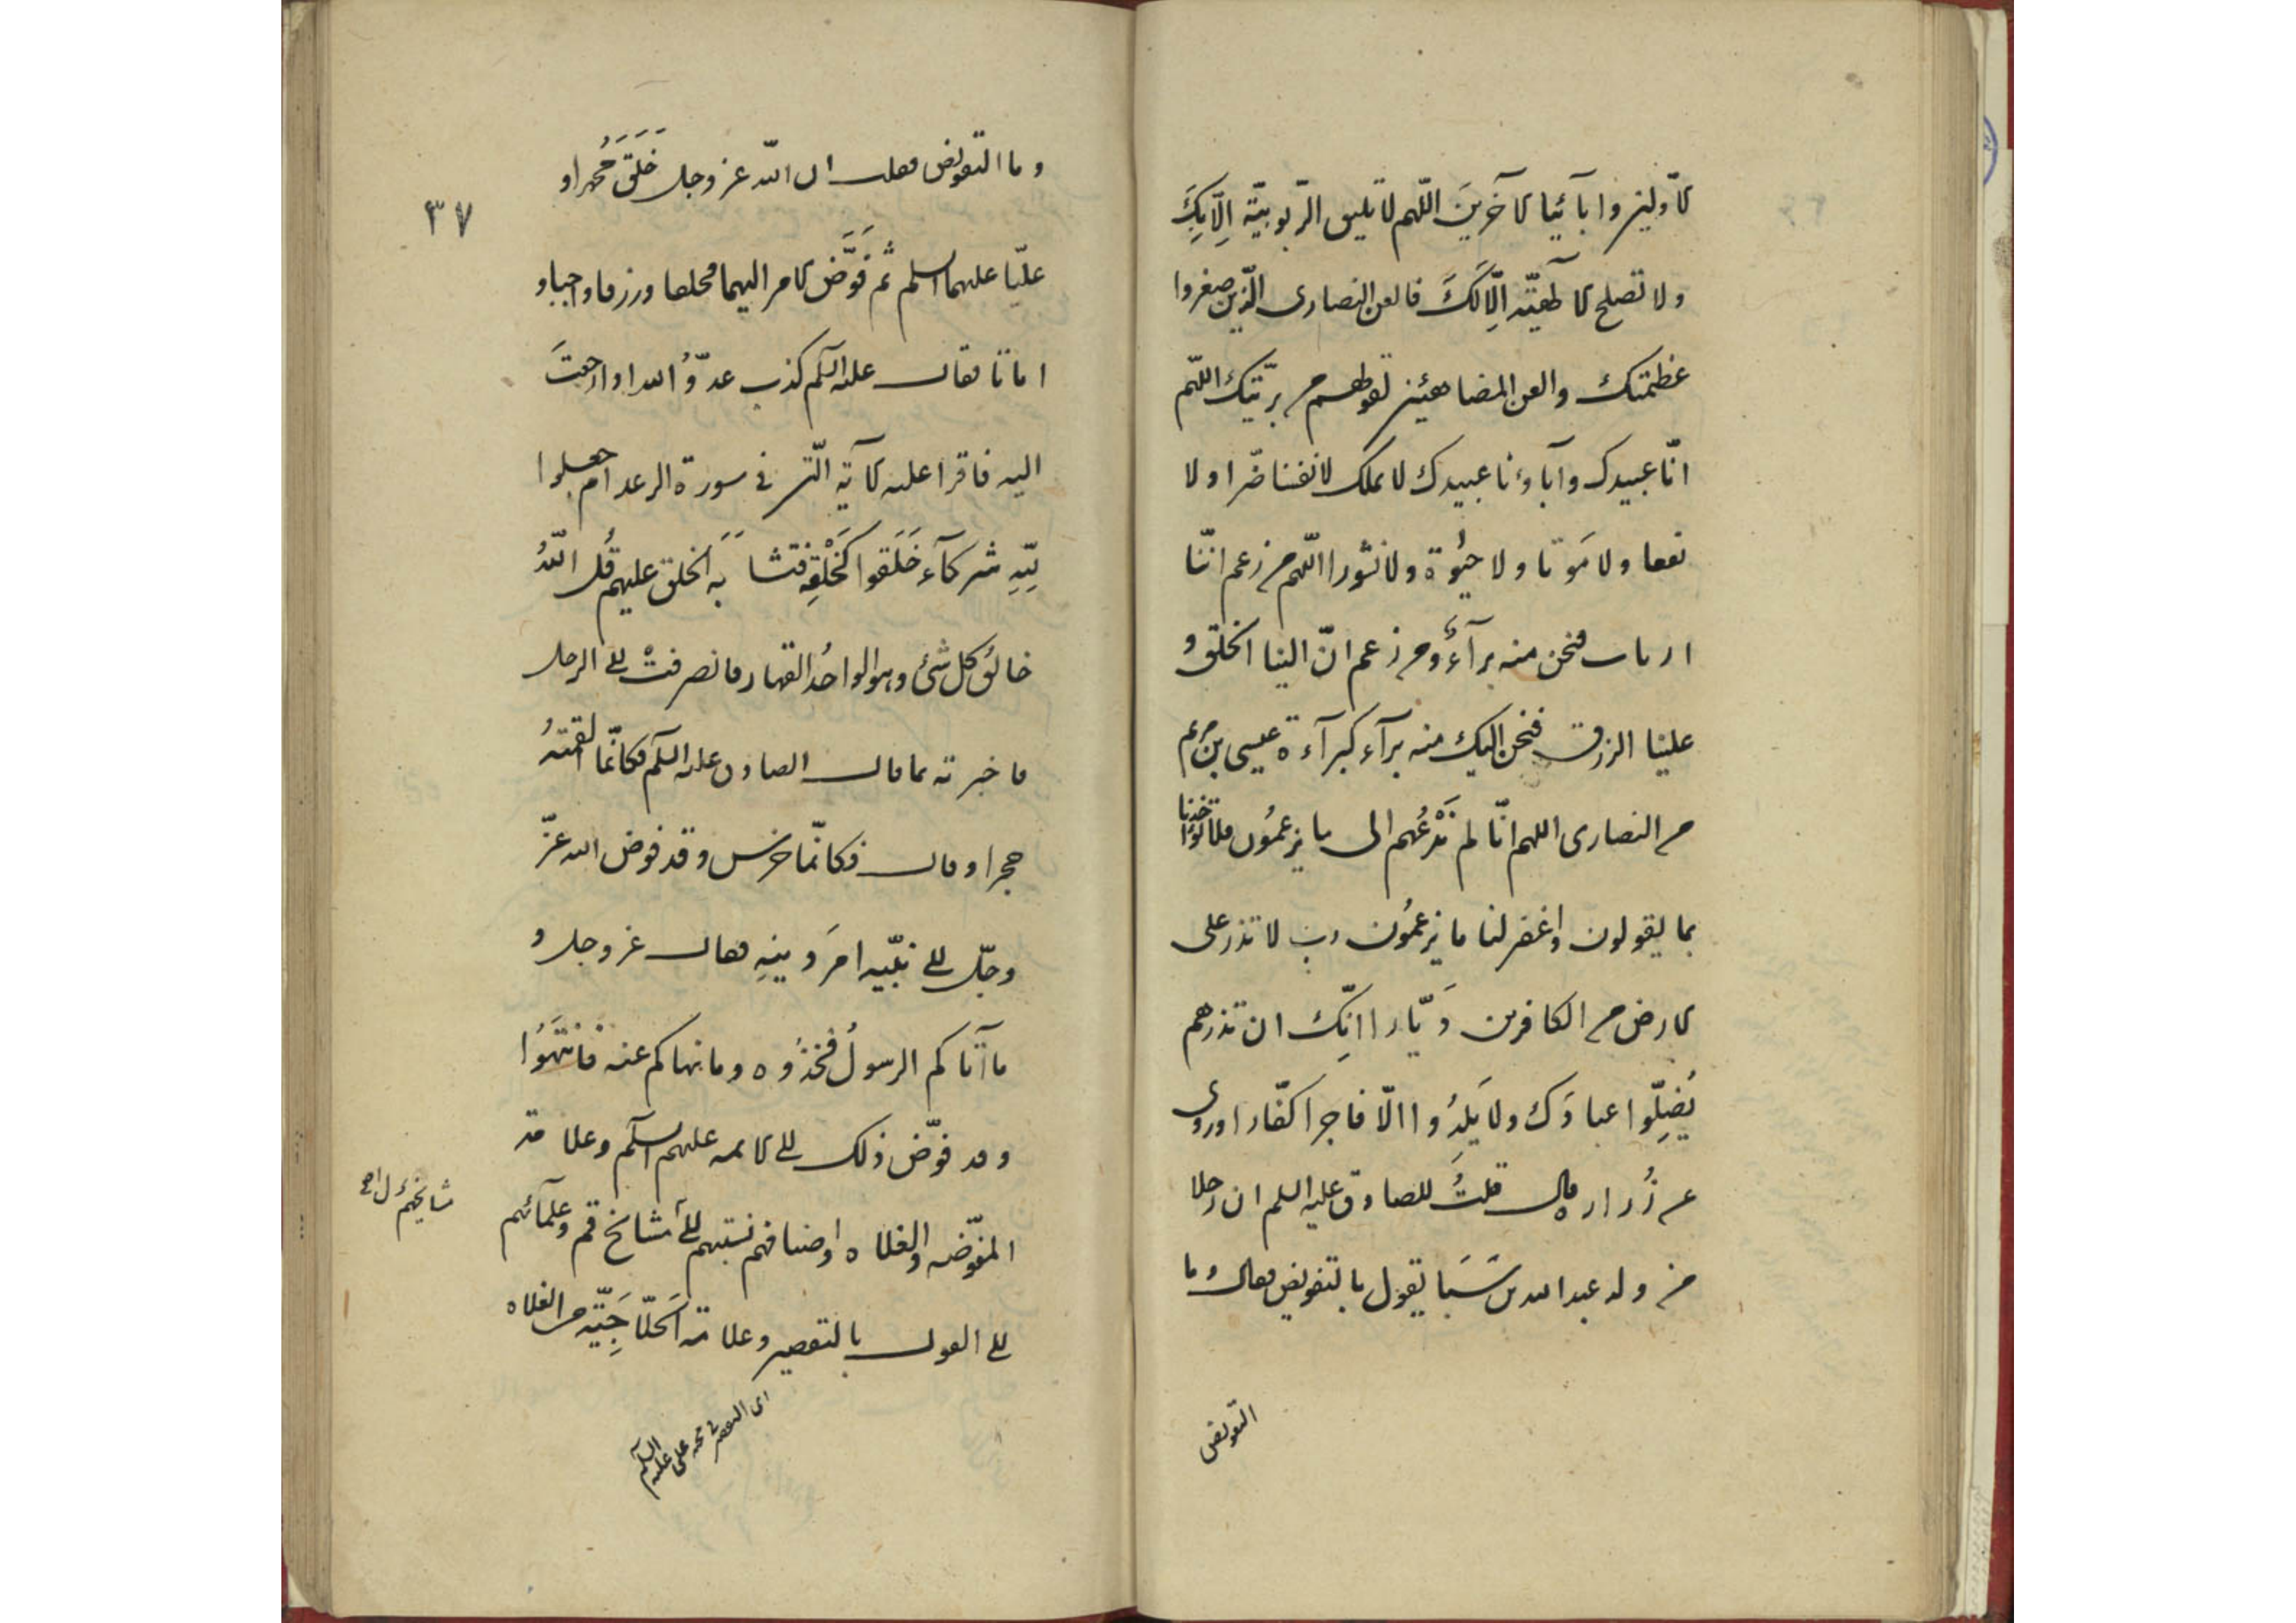 الأولين وابآئيا الآخرين اللهم لا تليق الربوبية الا بك
ولا تصلح الآلهية الا لك فالعن النصارى الذين صغروا
عظمتك والعن المضاهئين لقولهم من بريتك اللهم
انا عبيدك وآباؤنا عبيدك لا نملك لانفسنا ضرا ولا
نفعا ولا موتا ولا حيوة ولا نشورا اللهم من زعم اننا
ارباب فنحن منه برآء ومن زعم ان الينا الخلق و
علينا الرزق فنحن اليك منه برآء كبرآءة عيسى بن مريم
من النصارى اللهم انا لم ندعهم الى ما يزعمون فلا تؤاخذنا
بما يقولون واغفر لنا ما يزعمون رب لا تذر على
الارض من الكافرين ديارا انك ان تذرهم
يضلوا عبادك ولا يلدوا الا فاجرا كفارا وروى
عن زرارة قال قلت للصادق عليه السلم ان رجلا
من ولد عبد الله بن سبا يقول بالتفويض فقال وما
التفويض
وما التفويض فقلت ان الله عز وجل خلق محمدا و
٣٧
عليا عليهما السلم ثم فوض الامر اليهما فخلقا ورزقا واحييا و
اماتا فقال عليه السلم كذب عدو الله اذا رجعت
اليه فاقرا عليه الآية التى في سورة الرعد ام جعلوا
لله شركآء خلقوا كخلقه فتشابه الخلق عليهم قل الله
خالق كل شئ وهو الواحد القهار فانصرفت الى الرجل
فاخبرته بما قال الصادق عليه السلم فكانما القمته
حجرا وقال فكانما خرس وقد فوض الله عز
وجل الى نبيه امر دينه فقال عز وجل و
ما آتاكم الرسول فخذوه وما نهاكم عنه فانتهوا
وقد فوض ذلك الى الائمه عليهم السلم وعلامة
المفوضه والغلاه واصنافهم نسبتهم الى مشايخ قم وعلمآئهم
مشايخهم
الى القول بالتقصير وعلامة الحلاجية من الغلاه
اى التقصير في محبه على عليه السلم